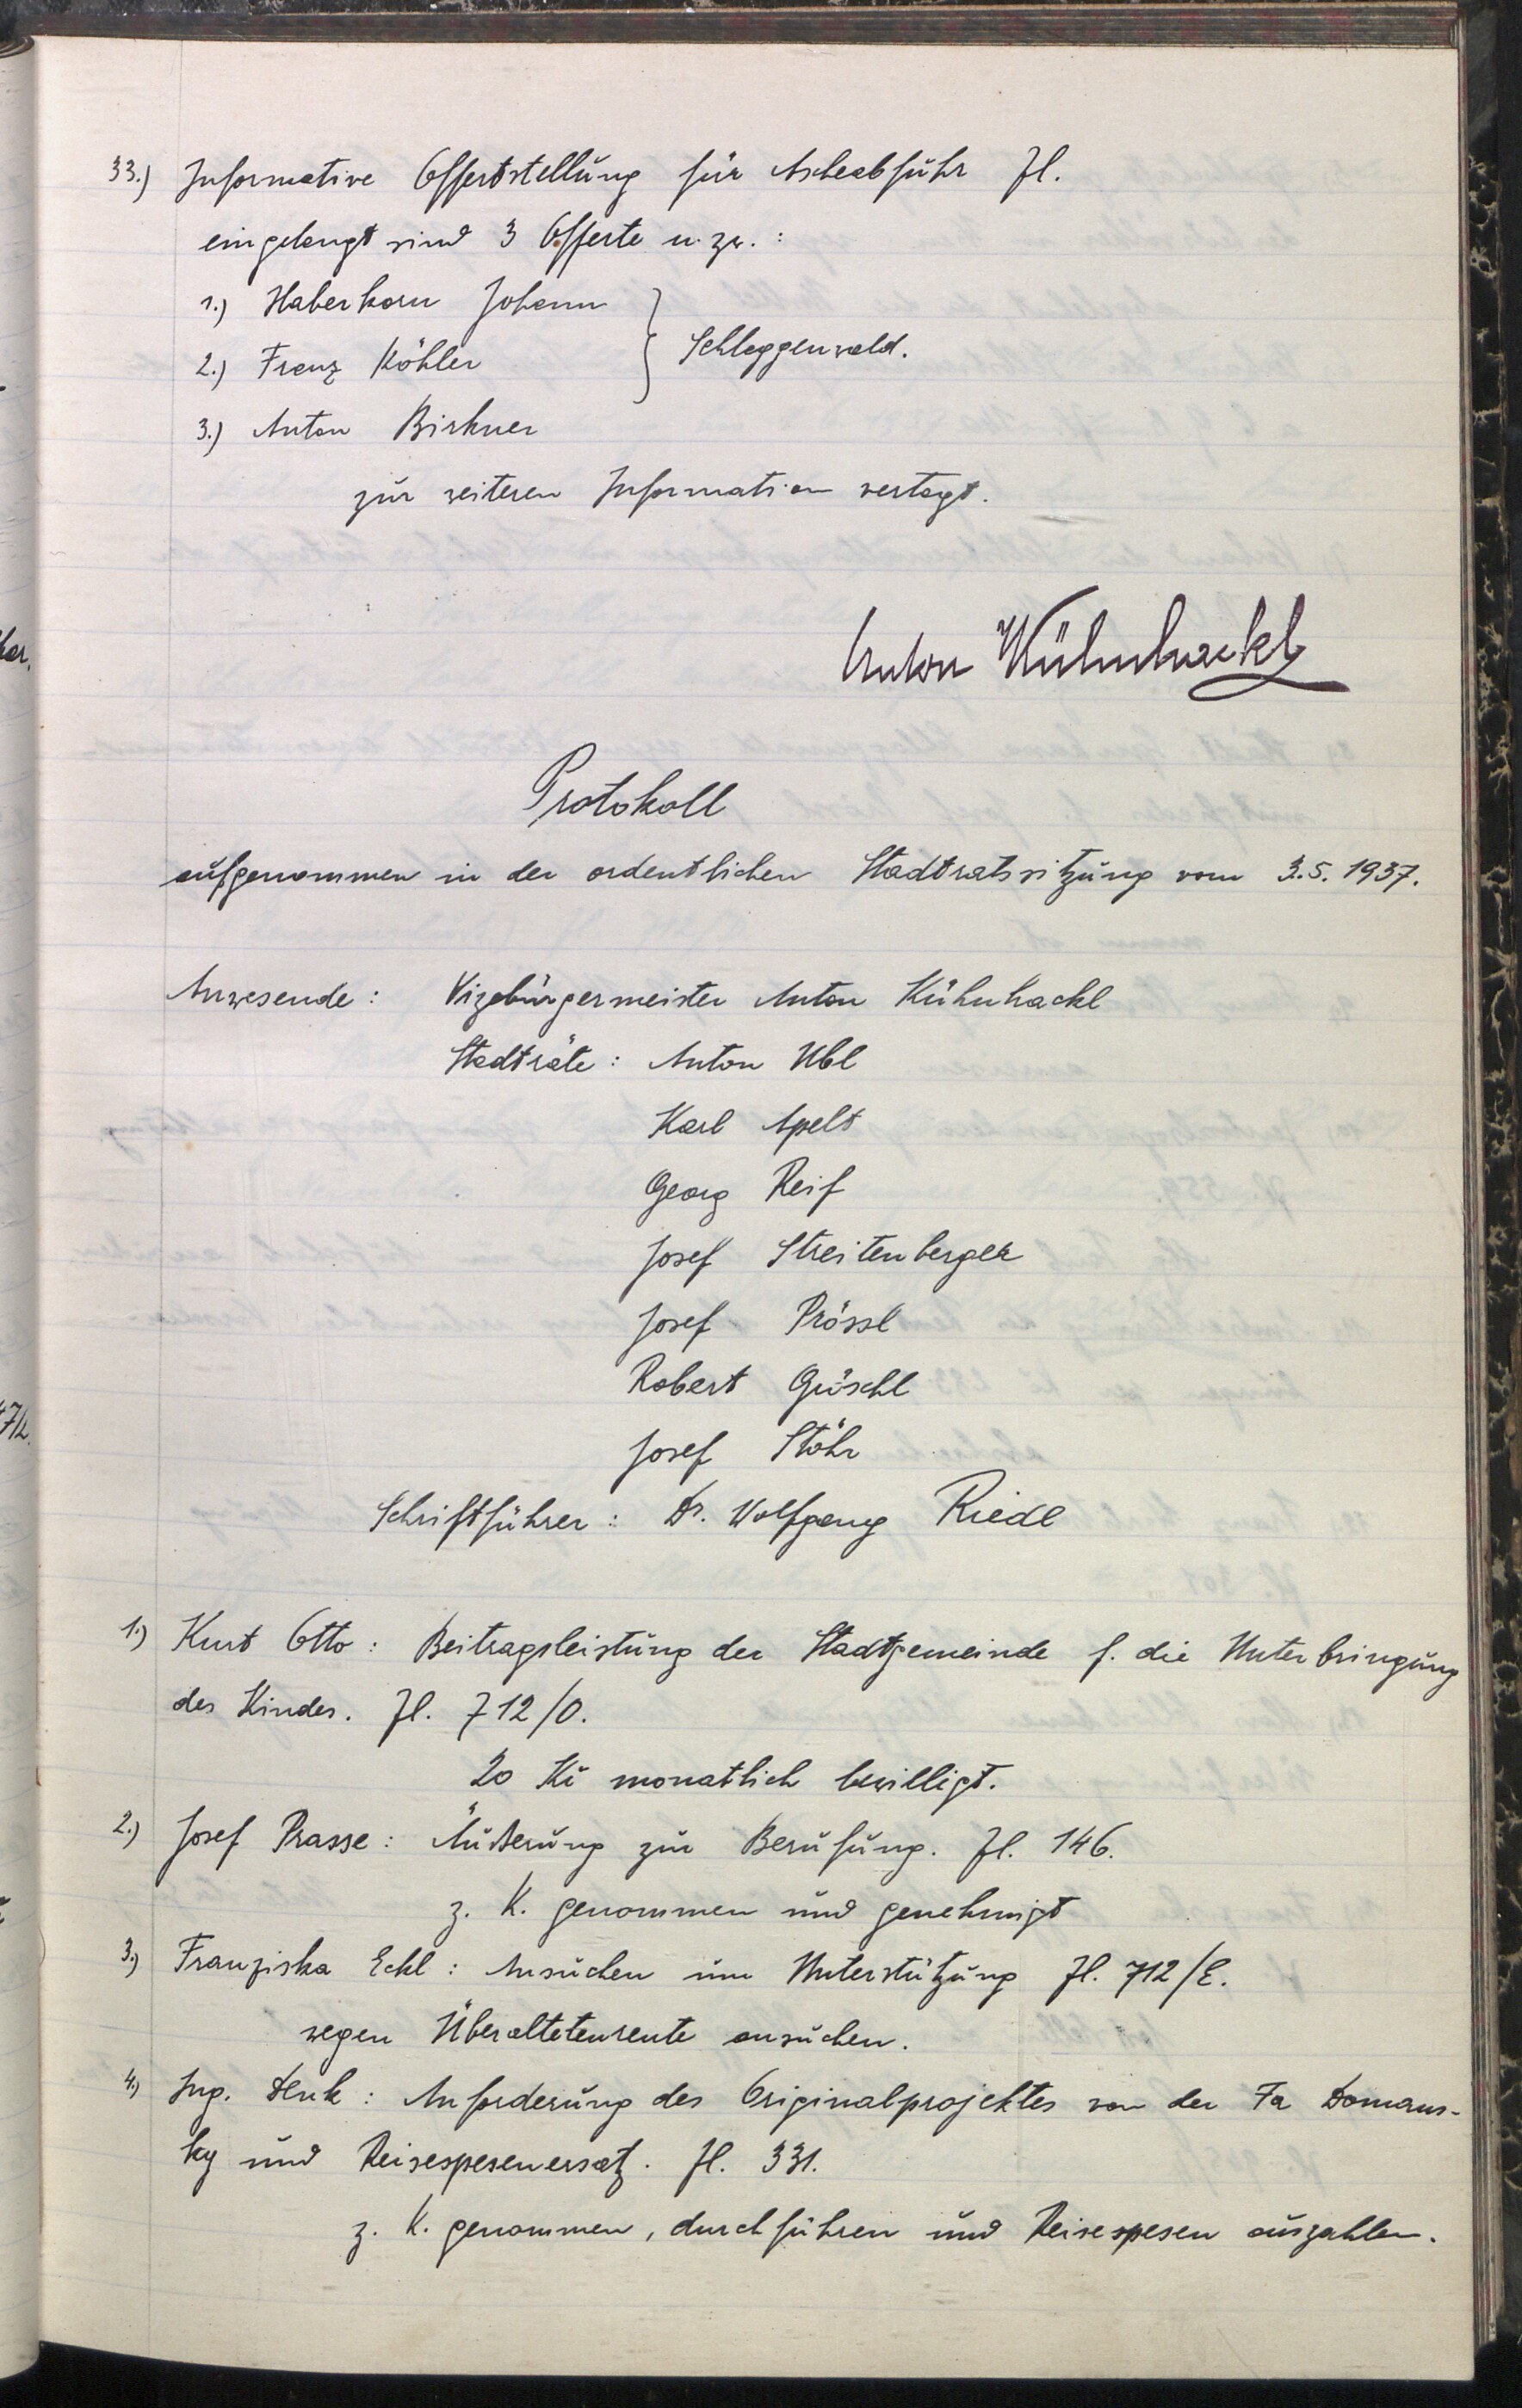 33.) Informative Offertstellung für Ascheabfuhr Zl.
eingelangt sind 3 Offerte u. zw.:
1.) Haberkorn Johann
2.) Franz Köhler } Schlaggenwald.
3.) Anton Birkner
zur weiteren Information vertagt.
Anton Kühnhackl
Protokoll
aufgenommen in der ordentlichen Stadtratssitzung vom 3.5.1937.
Anwesende: Vizebürgermeister Anton Kühnhackl
Stadträte: Anton Ubl
Karl Apelt
Georg Reif
Josef Streitenberger
Josef Prössl
Robert Gröschl
Josef Stöhr
Schriftführer: Dr. Wolfgang Riedl
1.) Kurt Otto: Beitragsleistung der Stadtgemeinde f. die Unterbringung
des Kindes. Zl. 712/O.
20 Kč monatlich bewilligt.
2.) Josef Prasse: Äußerung zur Berufung. Zl. 146.
z. K. genommen und genehmigt
3.) Franziska Eckl: Ansuchen um Unterstützung Zl. 712/E.
wegen Überaltetenrente ansuchen.
4.) Ing. Henk: Anforderung des Originalprojektes von der Fa Domans-
ky und Reisespesenersatz. Zl. 331.
z. K. genommen, durchführen und Reisespesen auszahlen.